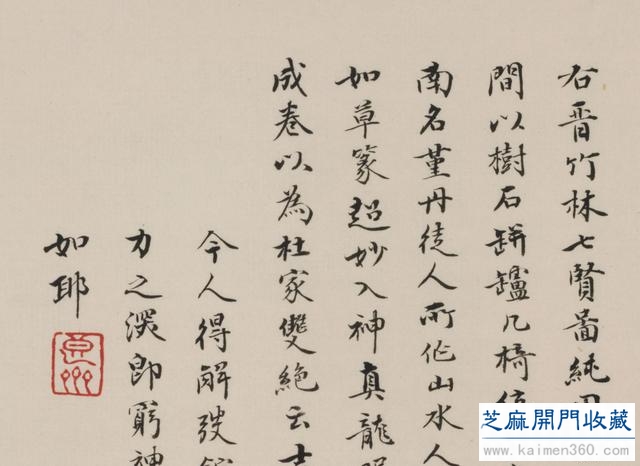 右晉竹林七賢啚純
間以樹石缾罏几椅
南名堇丹徒人所作山水人
如草篆超妙入神真龍
成卷以為杜家雙絕云士
今人得解弢
力之深即窮神
如耶
芝麻開門收藏
www.kaimen360.com